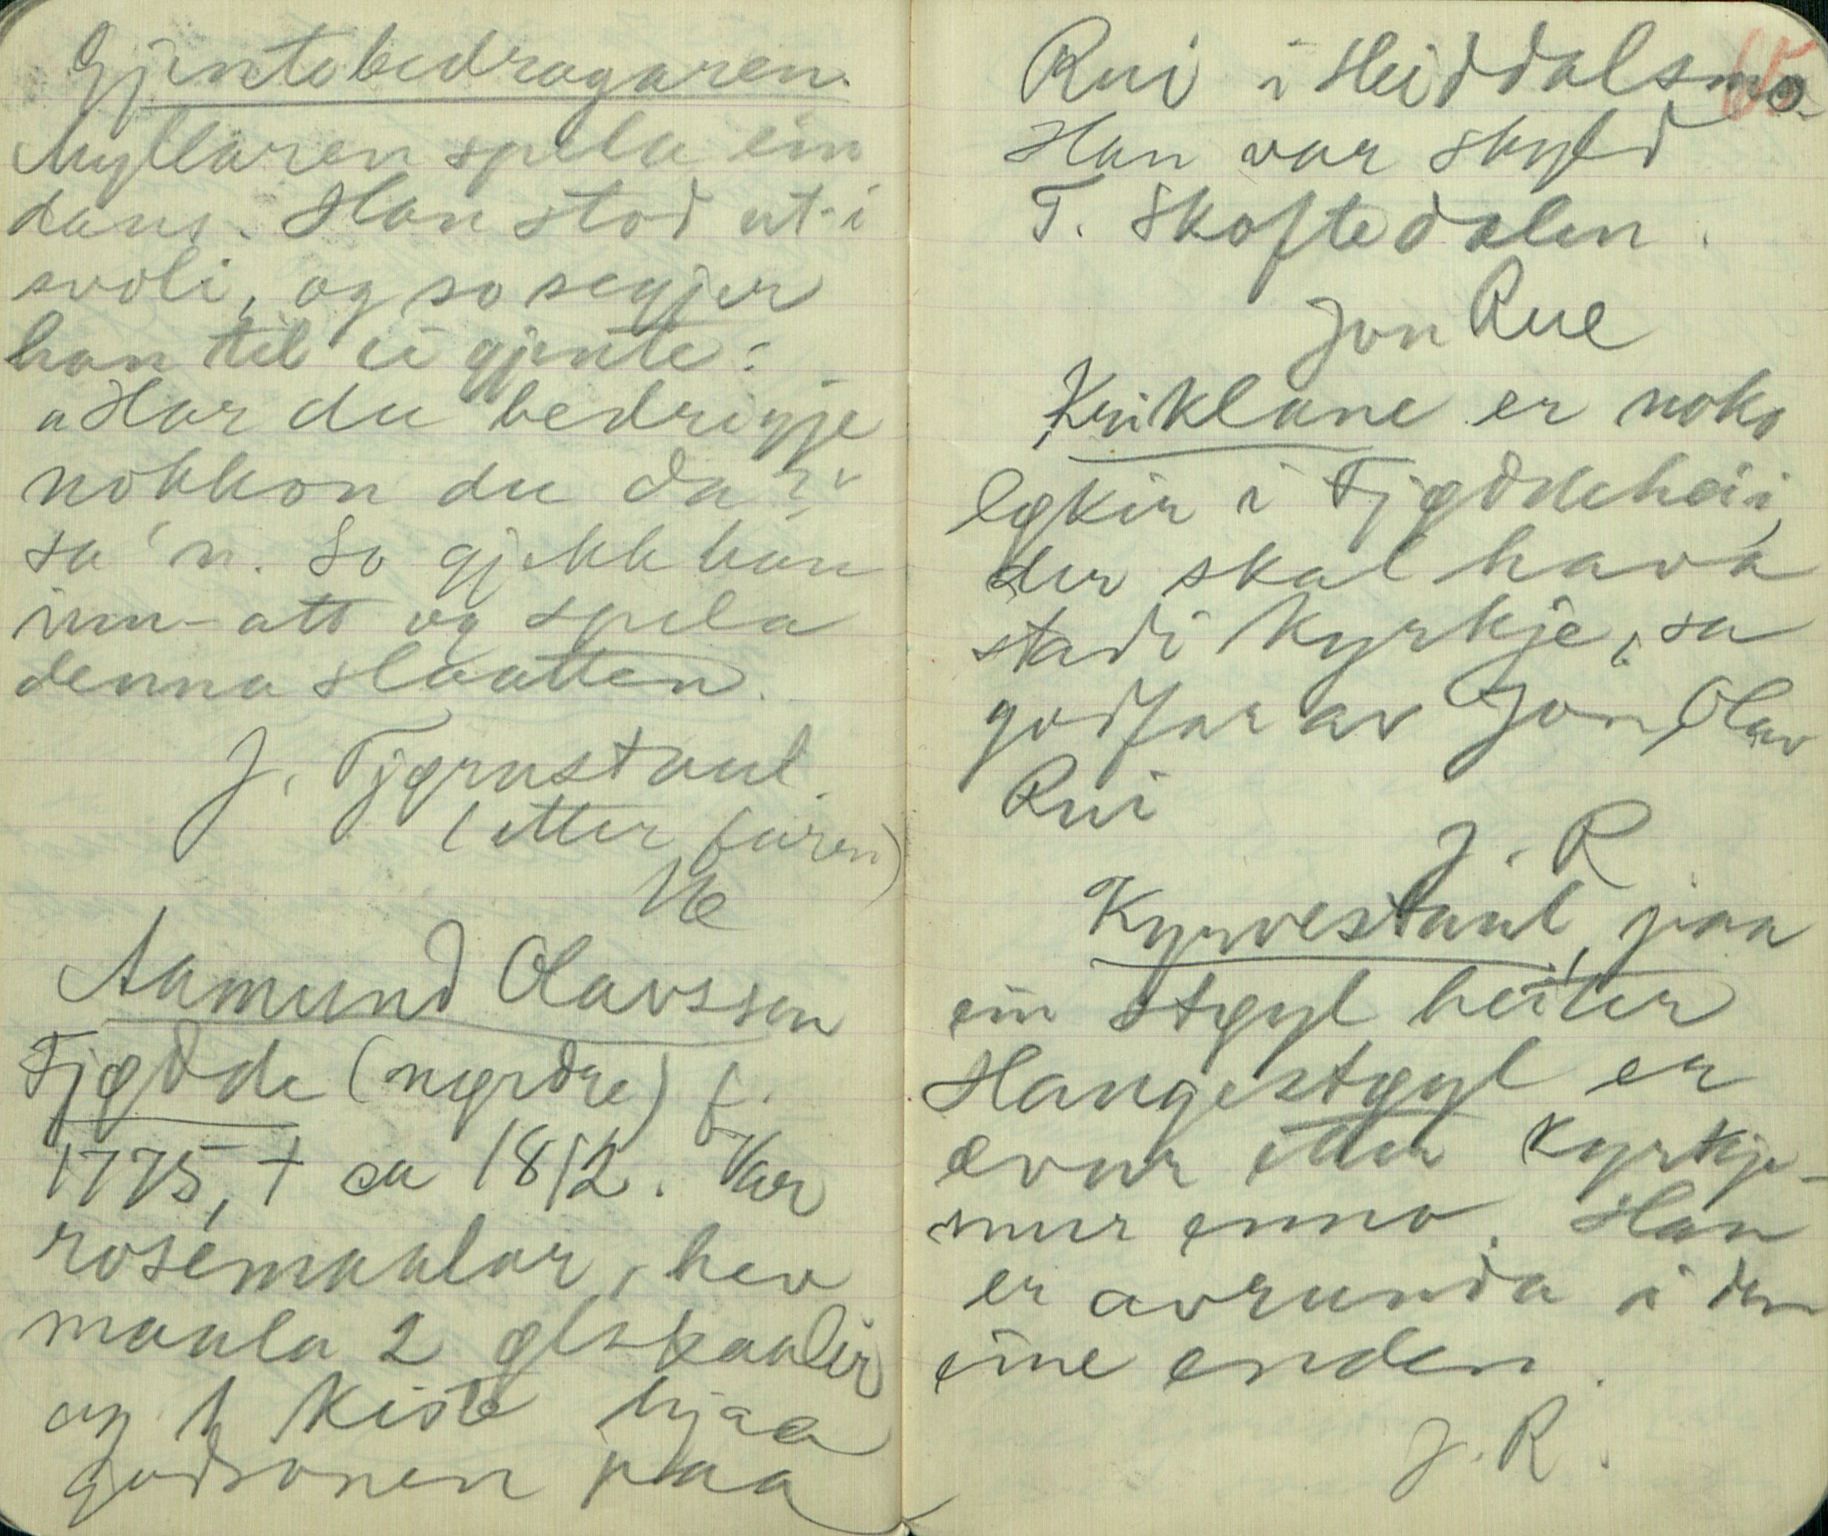 Gjentebedragaren.
Myllaren spela ein
dans. Han stod ut-i
svoli, og so segjer
han til ei gjente:
"Har du bedrigje
nokkon du da?"
sa'n. So gjekk han
inn-att og spela
denna slaatten.
J. Tjørnstaul.
(etter faren)
Aamund Olavsson
Tjødde (nørdre) f.
1775, † ca 1812. Var
rosemaalar, hev
maala 2 ølskaalir
og 1 kiste hjaa
godsonen paa
65
Rui i Heiddalsmo.
Han var skyld
T. Skoftedalen.
Jon Rue
Kriklane er noko
løkir i Tjøddeheii,
der skal hava
stadi kyrkje, sa
godfar av Jon, Olav
Rui
J. R
Kyrvestaul, paa
ein støyl heiter
Haugestøyl er
evur etter kyrkje-
mur enno. Han
er avrunda i den
eine enden.
J. R.